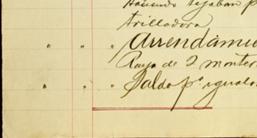 Haciendo tejaban p
trilladora
" " " Arrendamie
Raya de 2 monter
" " " Saldo pr igualar